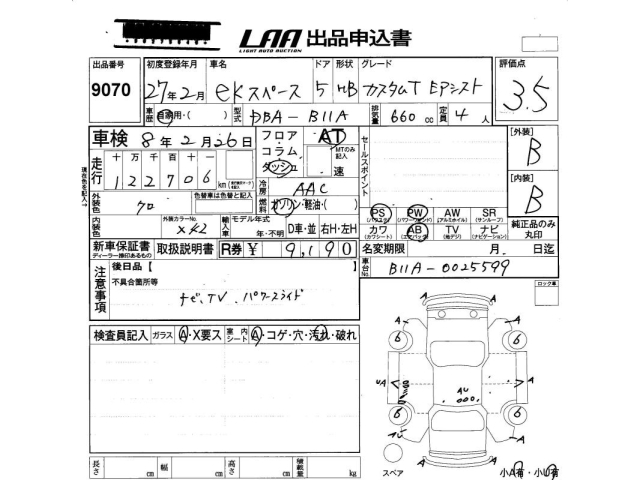 LAA 出品申込書
LIGHT AUTO AUCTION
出品番号 9070
初度登録年月 車名 ドア 形状 グレード
27年2月 eKスペース 5 HB カスタムT Eアシスト
評価点 3.5
車歴 自家用・( ) 型式 DBA-B11A 排気量 660 cc 定員 4 人
車検 8年2月26日
フロア・コラム・ダッシュ AT MTのみ記入 速
セールスポイント
[外装] B
[内装] B
現状色を記入→
走行 十 万 千 百 十
122706 km
冷房 AAC
燃料 ガソリン・軽油・( )
外装色 クロ
色替車は色替と記入
外装カラーNo. X42
輸入車 モデル年式 年・不明 D車・並 右H・左H
PS (パワステ) PW (パワーウィンドウ) AW (アルミホイル) SR (サンルーフ)
カワ (カワシート) AB (エアバッグ) TV (地デジ) ナビ (ナビゲーション)
純正品のみ丸印
新車保証書 取扱説明書 R券 ¥ 9,190
ディーラー捺印あるもの
名変期限 月 日迄
車台No. B11A-0025599
注意事項
後日品 [ ]
不具合箇所等
ナビ、TV、パワースライド
ロック車
検査員記入 ガラス A・X要ス 室内シート A・コゲ・穴・汚れ・破れ
A A
6 6
A A
UA AU A
6 6
AU A
A
長さ cm 幅 cm 高さ cm 積載量 kg
スペア 小A有・小U有